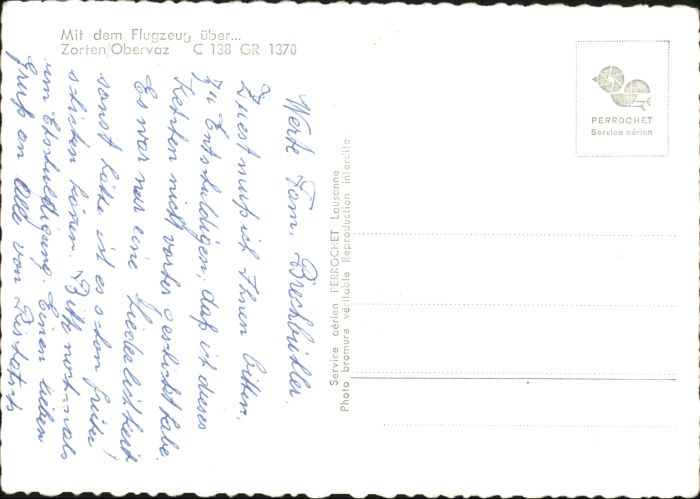 Mit dem Flugzeug über...
Zorten/Obervaz C 138 GR 1370
PERROCHET
Service aérien
Service aérien PERROCHET Lausanne
Photo bromure véritable Reproduction interdite
Werte Fam. Brechbühler.
Zuest muß ich Ihnen bitten,
zu Entschuldigen, daß ich dieses
Kertzen nicht vorher geschickt habe.
Es war nur eine Liederlichkeit
sonst hätte ich es schon früher
schicken können. Bitte nochmals
um Entschuldigung. Einen lieben
Gruß an Alle von